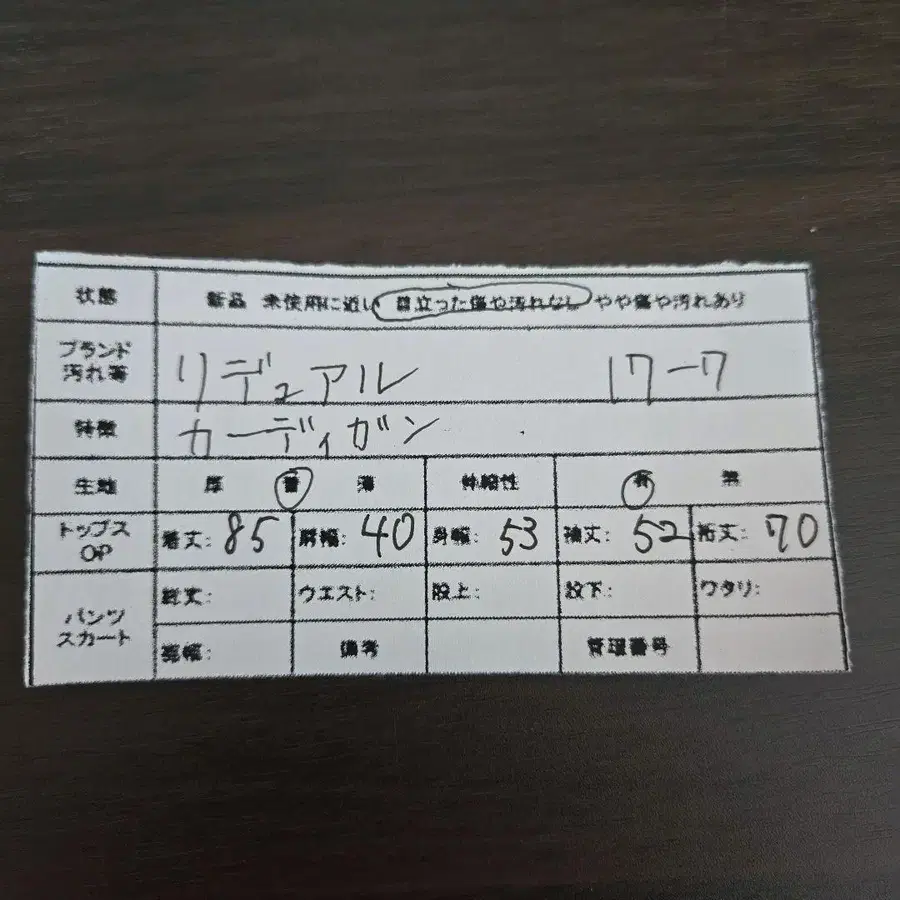 状態 新品 未使用に近い 目立った傷や汚れなし やや傷や汚れあり
ブランド
汚れ等 リデュアル 17-7
特徴 カーディガン
生地 厚 普 薄 伸縮性 有 無
トップス
OP 着丈: 85 肩幅: 40 身幅: 53 袖丈: 52 裄丈: 70
パンツ
スカート 総丈: ウエスト: 股上: 股下: ワタリ:
裾幅: 備考 管理番号